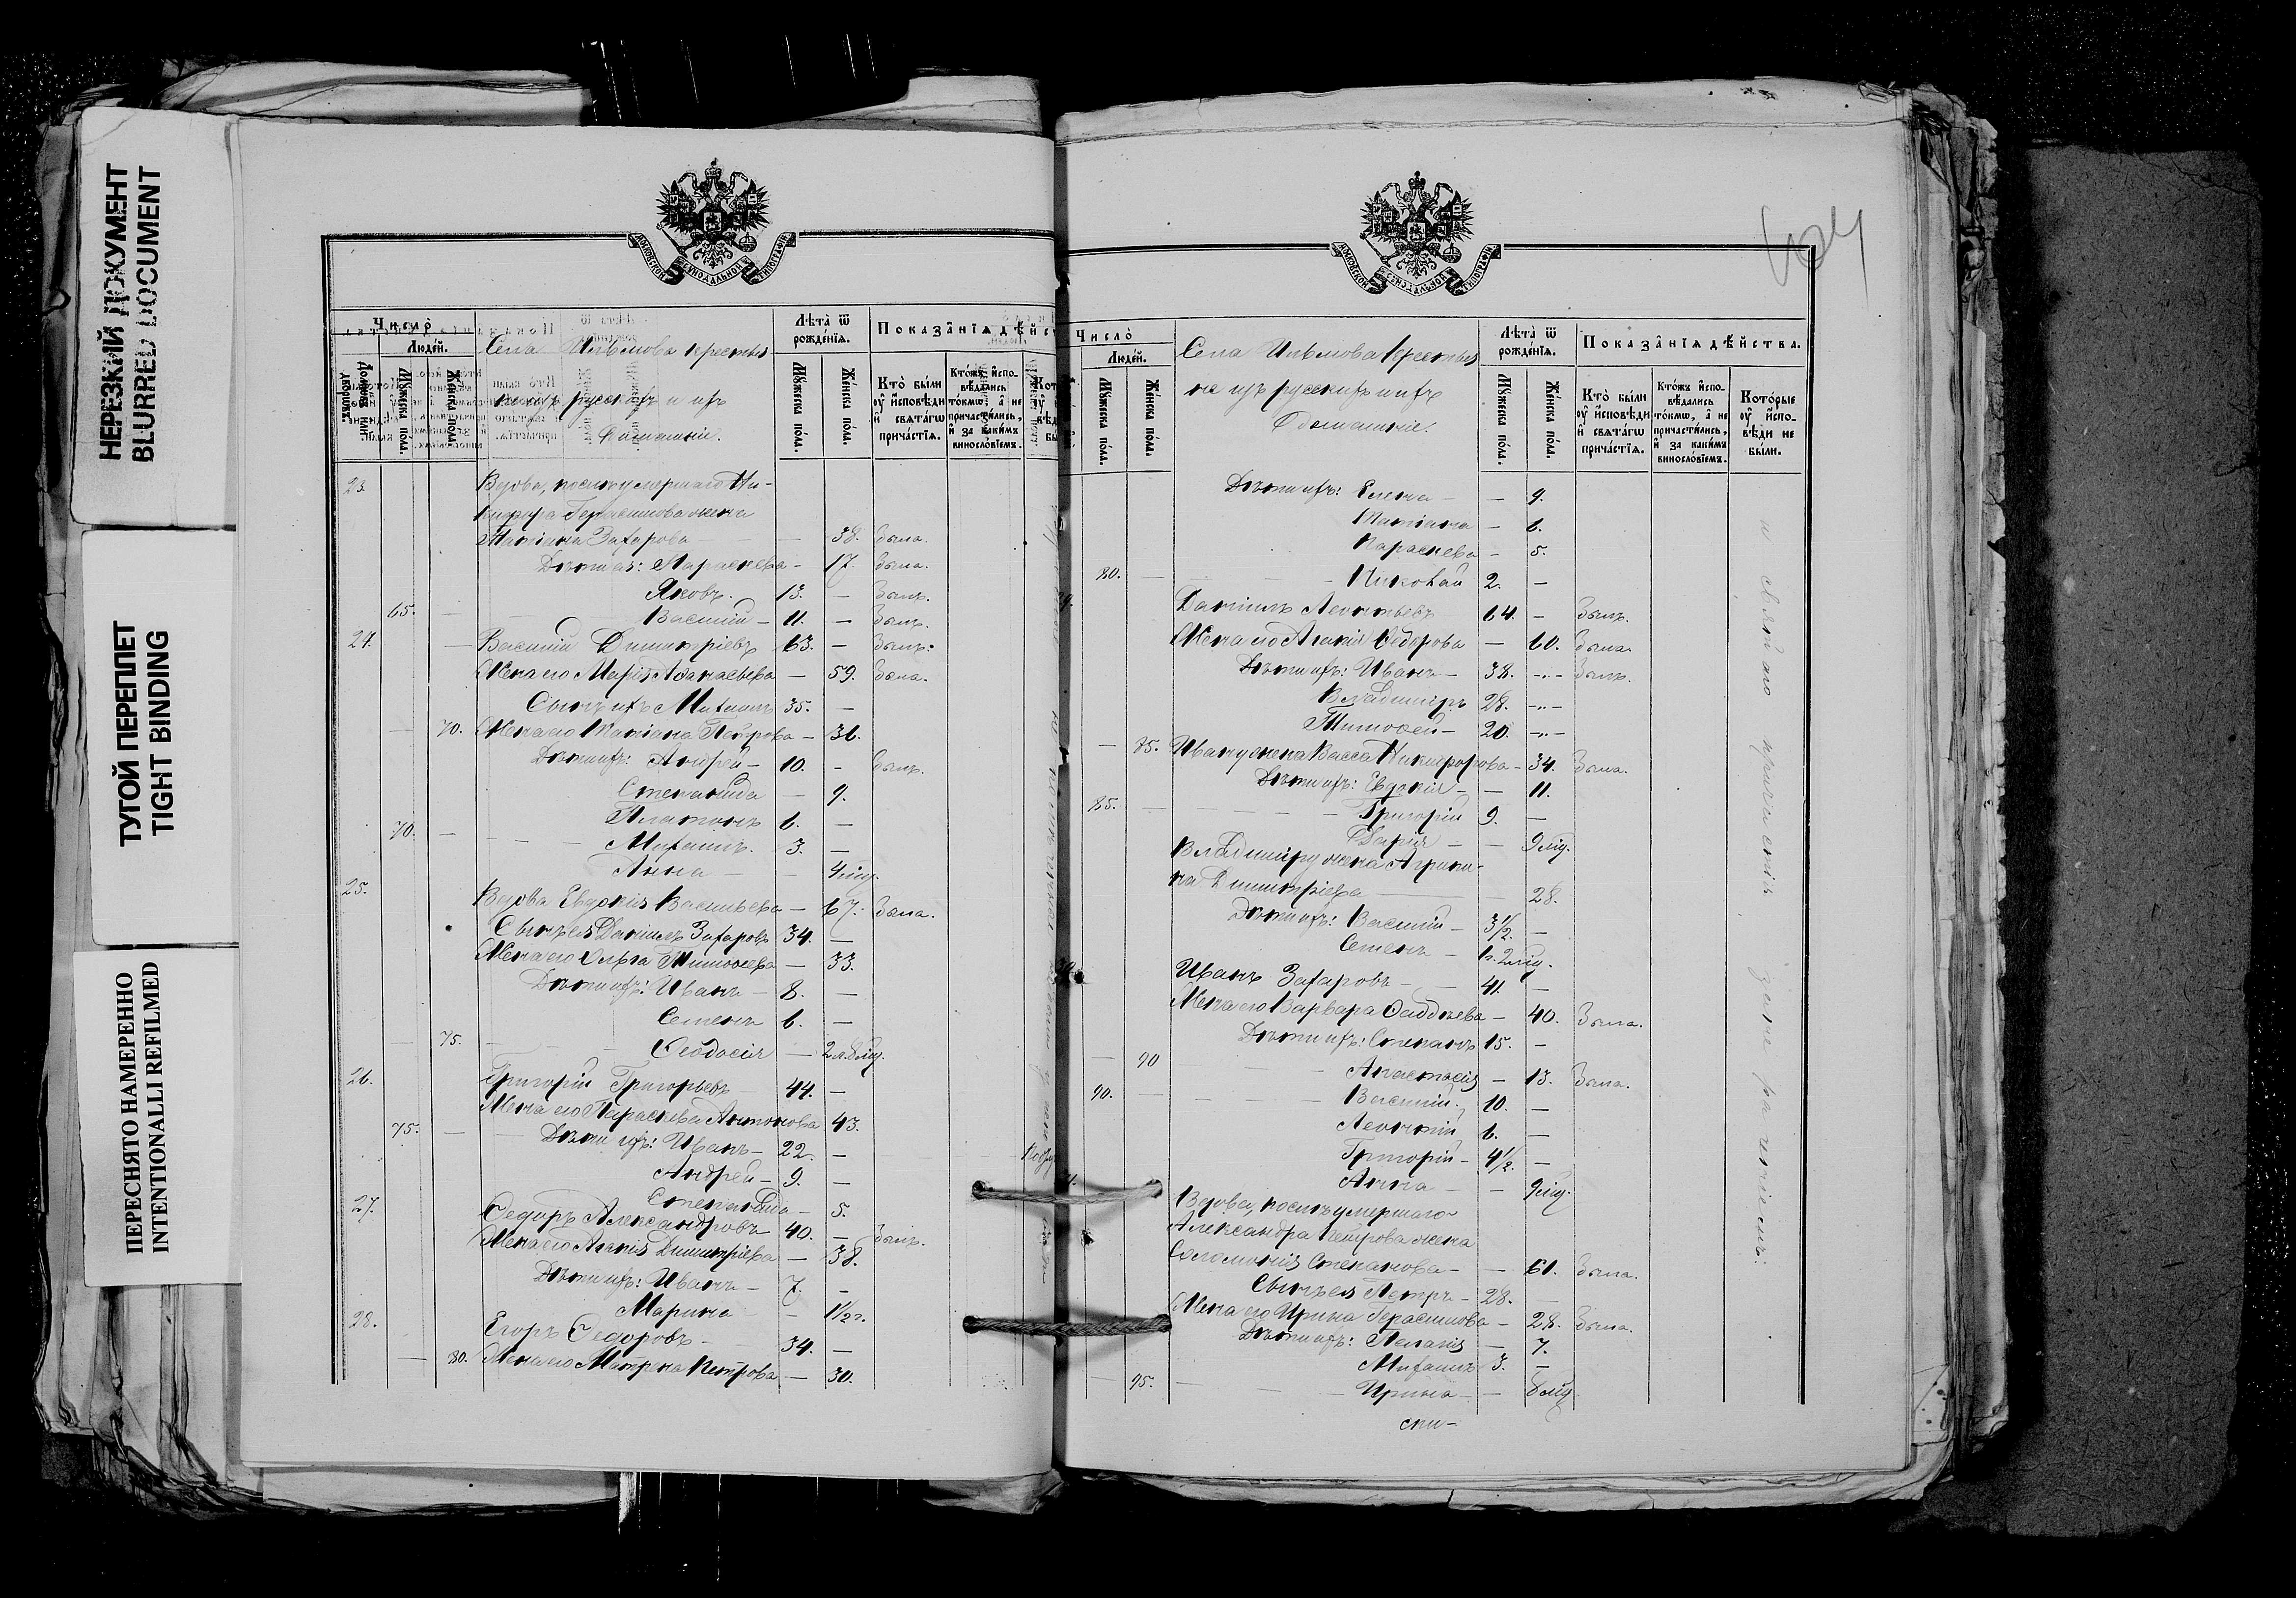 НЕРЕЗКИЙ ДОКУМЕНТ
BLURRED DOCUMENT
ТУГОЙ ПЕРЕПЛЕТ
TIGHT BINDING
ПЕРЕСНЯТО НАМЕРЕННО
INTENTIONALLI REFILMED
Число
Людей.
Мужеска пола.
Женска пола.
Села Ильмова крестья
не изъ русскихъ и ихъ
домашніе.
Лѣта ѿ рожденія.
Мужеска пола.
Женска пола.
Показанія дѣйст
Кто были у исповѣди и святагω причастія.
Ктожъ исповѣдались токмω, а не причастились, и за какимъ винословіемъ.
23. Вдова, послѣ умершаго Ни-
кифора Герасимова жена
Татіана Захарова — 58. была.
Дѣти ея: Параскева — 17. была.
Яковъ. 13. — былъ.
65. Василій — 11. — былъ.
24. Василій Димитріевъ 63. — былъ.
Жена его Марія Аѳанасьева — 59. была.
Сынъ ихъ Михаилъ 35. —
70. Жена его Татіана Петрова — 36.
Дѣти ихъ: Андрей — 10. - былъ.
Степанида — 9.
Платонъ 6. —
70. Михаилъ. 3. —
Анна — 4 мѣц.
25. Вдова Евдокія Васильева — 67. была.
Сынъ ея Даніилъ Захаровъ 34. —
Жена его Ольга Тимоѳеева — 33.
Дѣти ихъ: Иванъ — 8. —
Семенъ 6. —
75. Ѳеодосія — 2 л. 8 мѣц.
26. Григорій Григорьевъ 44. —
Жена его Параскева Антонова 43.
75. Дѣти ихъ: Иванъ — 22. —
Андрей — 9. —
Степанида — 5.
27. Ѳедоръ Александровъ 40. — былъ.
Жена его Агапія Димитріева — 38.
Дѣти ихъ: Иванъ — 7. —
Марина — 1½ г.
28. Егоръ Ѳедоровъ — 34. —
80. Жена его Матрена Петрова — 30.
Число
Людей.
Мужеска пола.
Женска пола.
Села Ильмова крестья
не изъ русскихъ и ихъ
домашніе.
Лѣта ѿ рожденія.
Мужеска пола.
Женска пола.
Показанія дѣйства.
Кто были у исповѣди и святагω причастія.
Ктожъ исповѣдались токмω, а не причастились, и за какимъ винословіемъ.
Которые у исповѣди не были.
Дѣти ихъ: Елена — — 9.
Татіана — 6.
Параскева — 5.
80. Николай 2. —
Даніилъ Леонтьевъ 64. — былъ.
Жена его Агапія Ѳедорова — 60. была.
Дѣти ихъ: Иванъ — 38. — былъ.
Владиміръ 28. —
Тимоѳей — 20. —
85. Ивану жена Васса Никифорова — 34. была.
Дѣти ихъ: Евдокія — — 11.
85. Григорій 9. —
Дарія — — 9 мѣц.
Владиміру жена Агрипи-
на Димитріева — 28.
Дѣти ихъ: Василій — 3½. —
Семенъ —
Иванъ Захаровъ — 41. —
Жена его Варвара Ѳаддѣева — 40. была.
Дѣти ихъ: Степанъ 15. —
90 Анастасія — 13. была.
90. Василій. 10. —
Леонтій 6. —
Григорій — 4½. —
Анна — — 9 мѣц.
Вдова, послѣ умершаго
Александра Петрова жена
Соломонія Степанова — — 61. была.
Сынъ ея Петръ — 28.
Жена его Ирина Герасимова — 28. была.
Дѣти ихъ: Пелагія — 7.
Михаилъ 3. —
95. Ирина — — 8 мѣц.